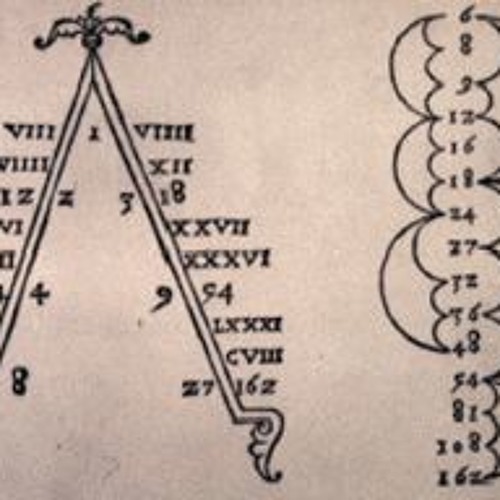 VIII 1 VIIII
VIIII XII
12 2 3 18
VI XXVII
II XXXVI
4 9 54
LXXXI
CVIII
8 27 162
6
8
9
12
16
18
24
27
32
36
48
54
81
108
162